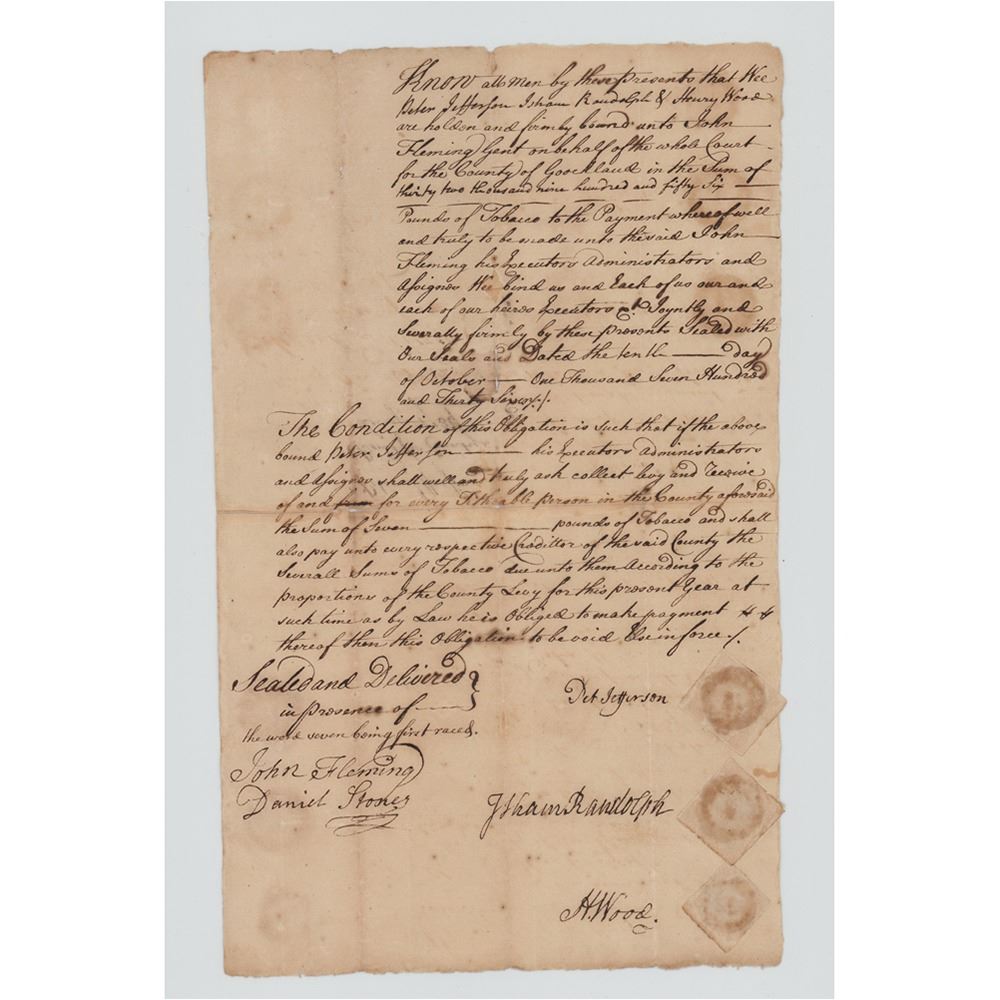 Know all men by these presents that Wee
Peter Jefferson Isham Randolph & Henry Wood
are holden and firmly bound unto John
Fleming Gent on behalf of the whole Court
for the County of Goochland in the Sum of
thirty two thousand nine hundred and fifty Six
Pounds of Tobacco to the Payment whereof well
and truly to be made unto the said John
Fleming his Executors Administrators and
Assignes Wee bind us and Each of us our and
each of our heires Executors Joyntly and
Severally firmly by these presents Sealed with
Our Seals and Dated the tenth day
of October One Thousand Seven Hundred
and Thirty Six
The Condition of this Obligation is Such that if the above
bound Peter Jefferson his Executors Administrators
and Assignes shall well and truly ask collect levy and Receive
of and for every Titheable person in the County aforesaid
the Sum of Seven pounds of Tobacco and shall
also pay unto every respective Creditter of the said County the
Severall Sums of Tobacco due unto them According to the
proportions of the County Levy for this present Year at
such time as by Law he is Obliged to make payment
thereof then this Obligation to be void Else in force
Sealed and Delivered
in presence of
the word seven being first raced.
John Fleming
Daniel Stoner
Pet Jefferson
Isham Randolph
H. Wood.